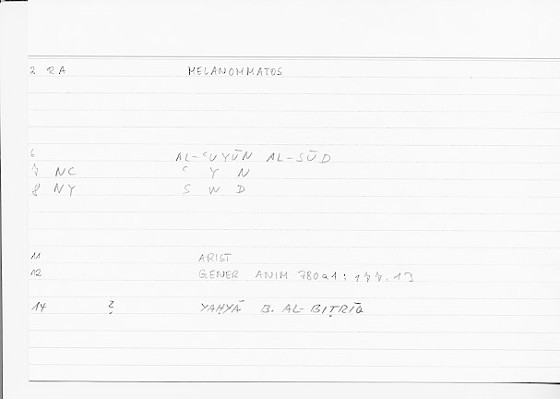 2 RA MELANOMMATOS
6 AL-ʿUYŪN AL-SŪD
7 NC ʿ Y N
8 NY S W D
11 ARIST
12 GENER ANIM 780a1: 177.13
14 ? YAḤYĀ B. AL-BIṬRĪQ